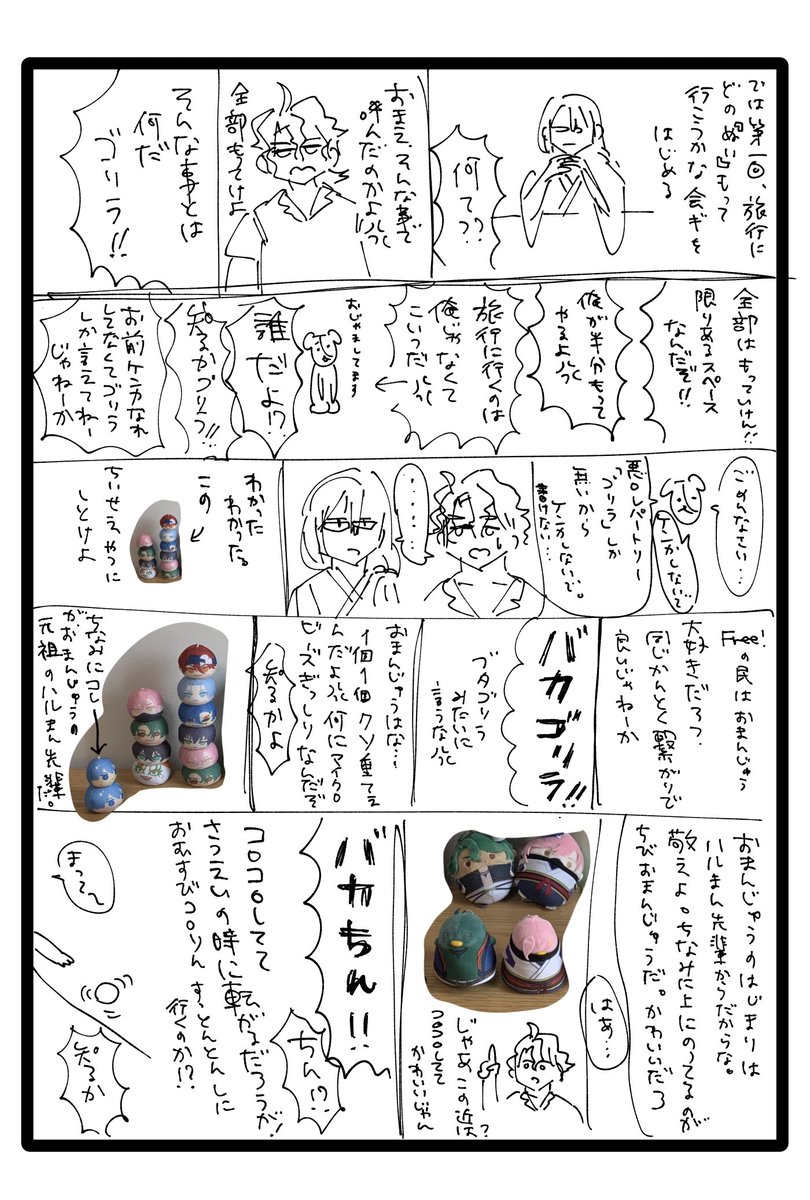 では第一回、旅行に
どのぬい凸もって
行こうかな会ギを
はじめる
何て??
おまえ、そんな事で
呼んだのかよ
全部もてけよ
そんな事とは
何だ
ゴリラ!!
全部はもっていけん!!
限りあるスペース
なんだぞ!!
俺が半分もって
やるよ
旅行に行くのは
俺じゃなくて
こいつだ
おじゃましてます
誰だよ!?
知るかゴリラ!!
お前ケンカなれ
してなくてゴリラ
しか言えてねー
じゃねーか
ごめんなさい…
ケンカしないで
悪口レパートリー
「ゴリラ」しか
無いから
ケンカしないで。
書けない…
……
わかった
わかった
この
ちいせえやつに
しとけよ
Free!の民はおまんじゅう
大好きだろ?
同じかんとく繋がりで
良いじゃねーか
バカゴリラ!!
ブタゴリラ
みたいに
言うな
おまんじゅうはな…
1個1個クソ重てえ
んだよ 何にマイクロ
ビーズぎっしりなんだぞ
知るかよ
ちなみにコレ
がおまんじゅうの
元祖のハルまん先輩だ。
おまんじゅうのはじまりは
ハルまん先輩からだからな。
敬えよ。ちなみに上にのってるのが
ちびおまんじゅうだ。かわいいだろ
はあ…
じゃあこの近は?
コロコロしてて
かわいいじゃん
バカちん!!
ちん!?
コロコロしてて
さつえいの時に転がるだろうが!
おむすびコロりん すっとんとんしに
行くのか!?
まって〜
知るか